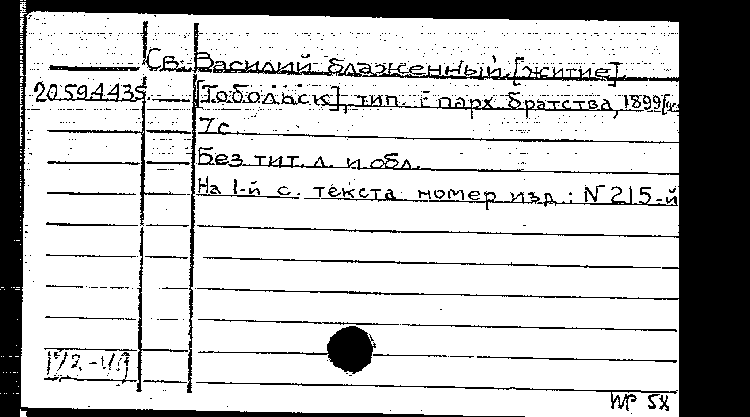 Св. Василий блаженный. [житие].
20.59.4.435. [Тобольск], тип. Епарх. братства, 1899
7 с.
Без тит. л. и обл.
На 1-й с. текста номер изд.: N 215-й